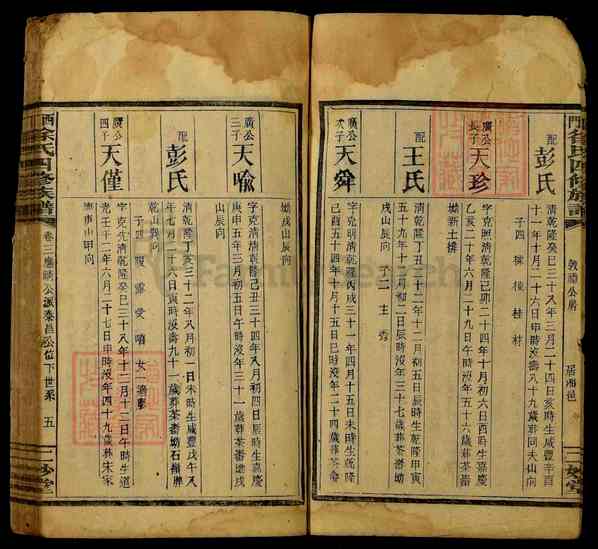 門徐氏四修族譜
敦禮公房
居湘邑
二妙堂
配彭氏
清乾隆癸巳三十八年三月二十四日亥時生咸豐辛酉
十一年十月二十六日申時沒壽八十九歲葬同夫山向
子四
桂
廣公長子天珍
字克照清乾隆己卯二十四年十月初六日酉時生嘉慶
乙亥二十年六月二十九日午時沒年五十六歲葬茶
塘新土排
配王氏
清乾隆丁丑二十二年十二月初五日辰時生乾隆甲寅
五十九年十一月初二日辰時沒年三十七歲葬茶畬塘
戌山辰向
子二
廣公次子天舜
字克明清乾隆丙戌三十一年四月十五日未時生乾隆
己酉五十四年十月十五日巳時沒年二十四歲葬茶畬
塘戌山辰向
廣公三子天喻
字克清清乾隆己丑三十四年八月初四日辰時生嘉慶
庚申五年三月初五日午時沒年三十一歲葬茶畬塘戌
山辰向
配彭氏
清乾隆丁亥三十二年八月初一日未時生咸豐戊午八
年七月二十六日寅時沒壽九十一歲葬茶畬塘石
乾山巽向
子四
愛
女
適彭
廣公四子天僅
字克 清乾隆癸巳三十八年十二月十二日午時生道
光壬十二年六月二十七日申時沒年四十九歲葬宋家
山甲向
西徐氏四修族譜
卷三 公派泰昌公位下世系
五
二妙堂